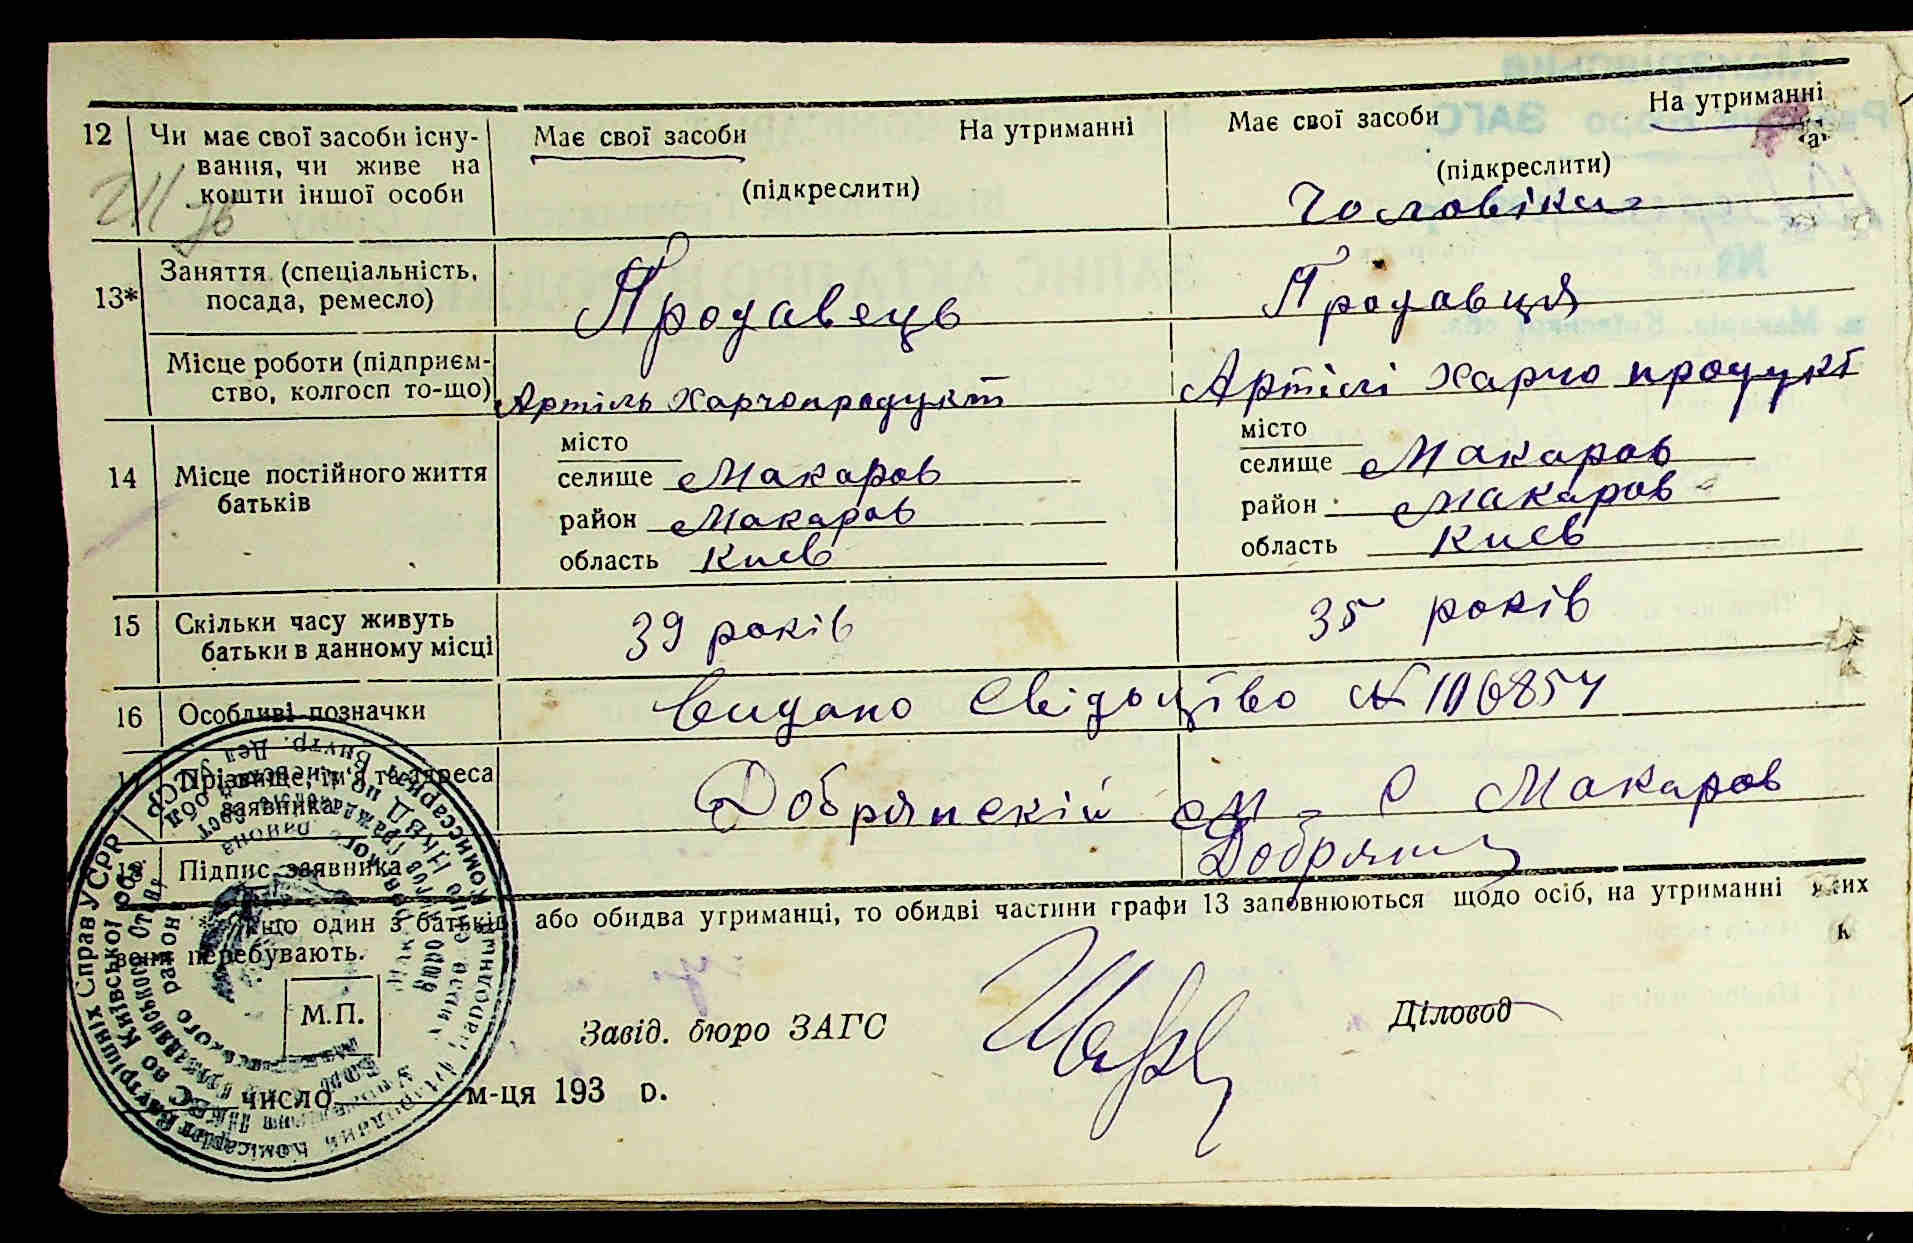 12 Чи має свої засоби існу- Має свої засоби На утриманні Має свої засоби На утриманні
вання, чи живе на
кошти іншої особи (підкреслити) (підкреслити)
Чоловіка
13* Заняття (спеціальність,
посада, ремесло) Продавець Продавця
Місце роботи (підприєм-
ство, колгосп то-що) Артіль Харчопродукт Артілі Харчо продукт
місто місто
14 Місце постійного життя селище Макаров селище Макаров
батьків район Макаров район Макаров
область Київ область Київ
15 Скільки часу живуть
батьки в данному місці 39 років 35 років
16 Особливі позначки Видано Свідоцтво №
17 Прізвище, ім'я та адреса
заявника Добрянскій М – С Макаров
18 Підпис заявника
* Якщо один з батьків або обидва утриманці, то обидві частини графи 13 заповнюються щодо осіб, на утриманні яких
вони перебувають.
М.П.
Завід. бюро ЗАГС Діловод
число м-ця 193 р.